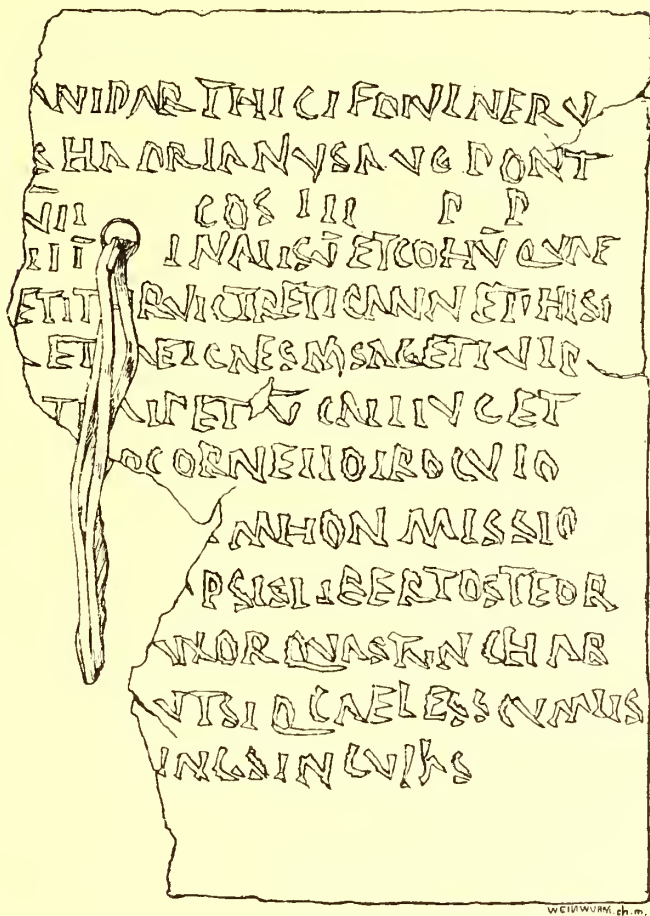 ANIPARTHICIFDIVINERV
SHADRIANVSAVGPONT
VII COS III P P
III I INALIISVETCOHVQVAE
ETIT RVICTRETICANNETIHISI
ET NEICAESMSAGETIVIP
CALIIVCET
OCORNEIIOIROCVIO
MHONMISSIO
PSISLIBERTOSTEOR
VXORQVASTVNCHAB
VTSIQCAELESSCVMIIS
INGSINGVLAS
WEINWURM.ch.m.